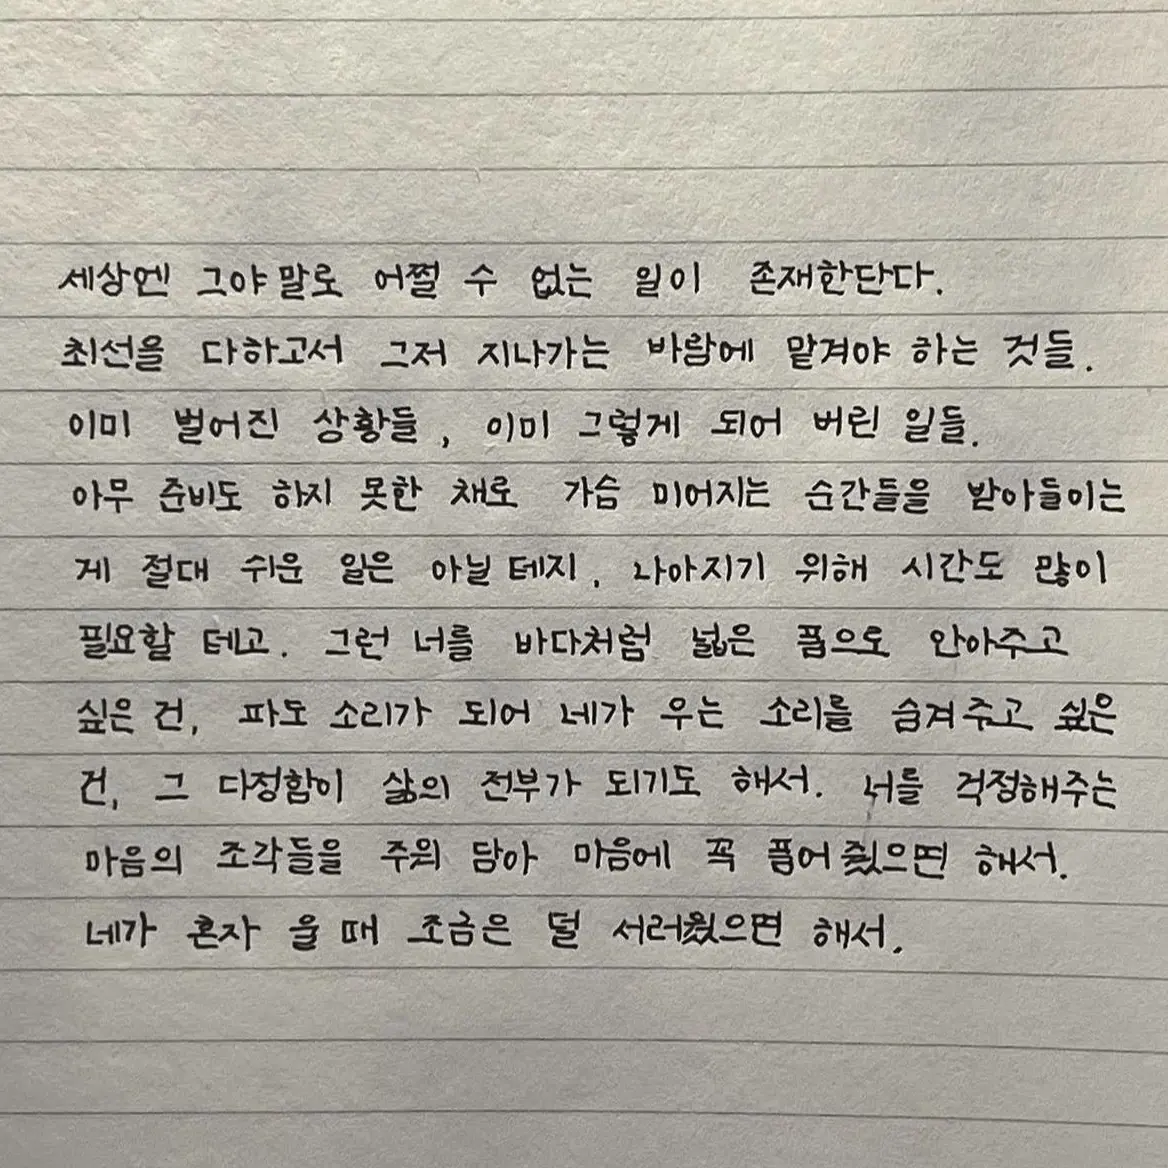 세상엔 그야말로 어쩔 수 없는 일이 존재한단다.
최선을 다하고서 그저 지나가는 바람에 맡겨야 하는 것들.
이미 벌어진 상황들, 이미 그렇게 되어 버린 일들.
아무 준비도 하지 못한 채로 가슴 미어지는 순간들을 받아들이는
게 절대 쉬운 일은 아닐 테지. 나아지기 위해 시간도 많이
필요할 테고. 그런 너를 바다처럼 넓은 품으로 안아주고
싶은 건, 파도 소리가 되어 네가 우는 소리를 숨겨주고 싶은
건, 그 다정함이 삶의 전부가 되기도 해서. 너를 걱정해주는
마음의 조각들을 주워 담아 마음에 꼭 품어줬으면 해서.
네가 혼자 울 때 조금은 덜 서러웠으면 해서.